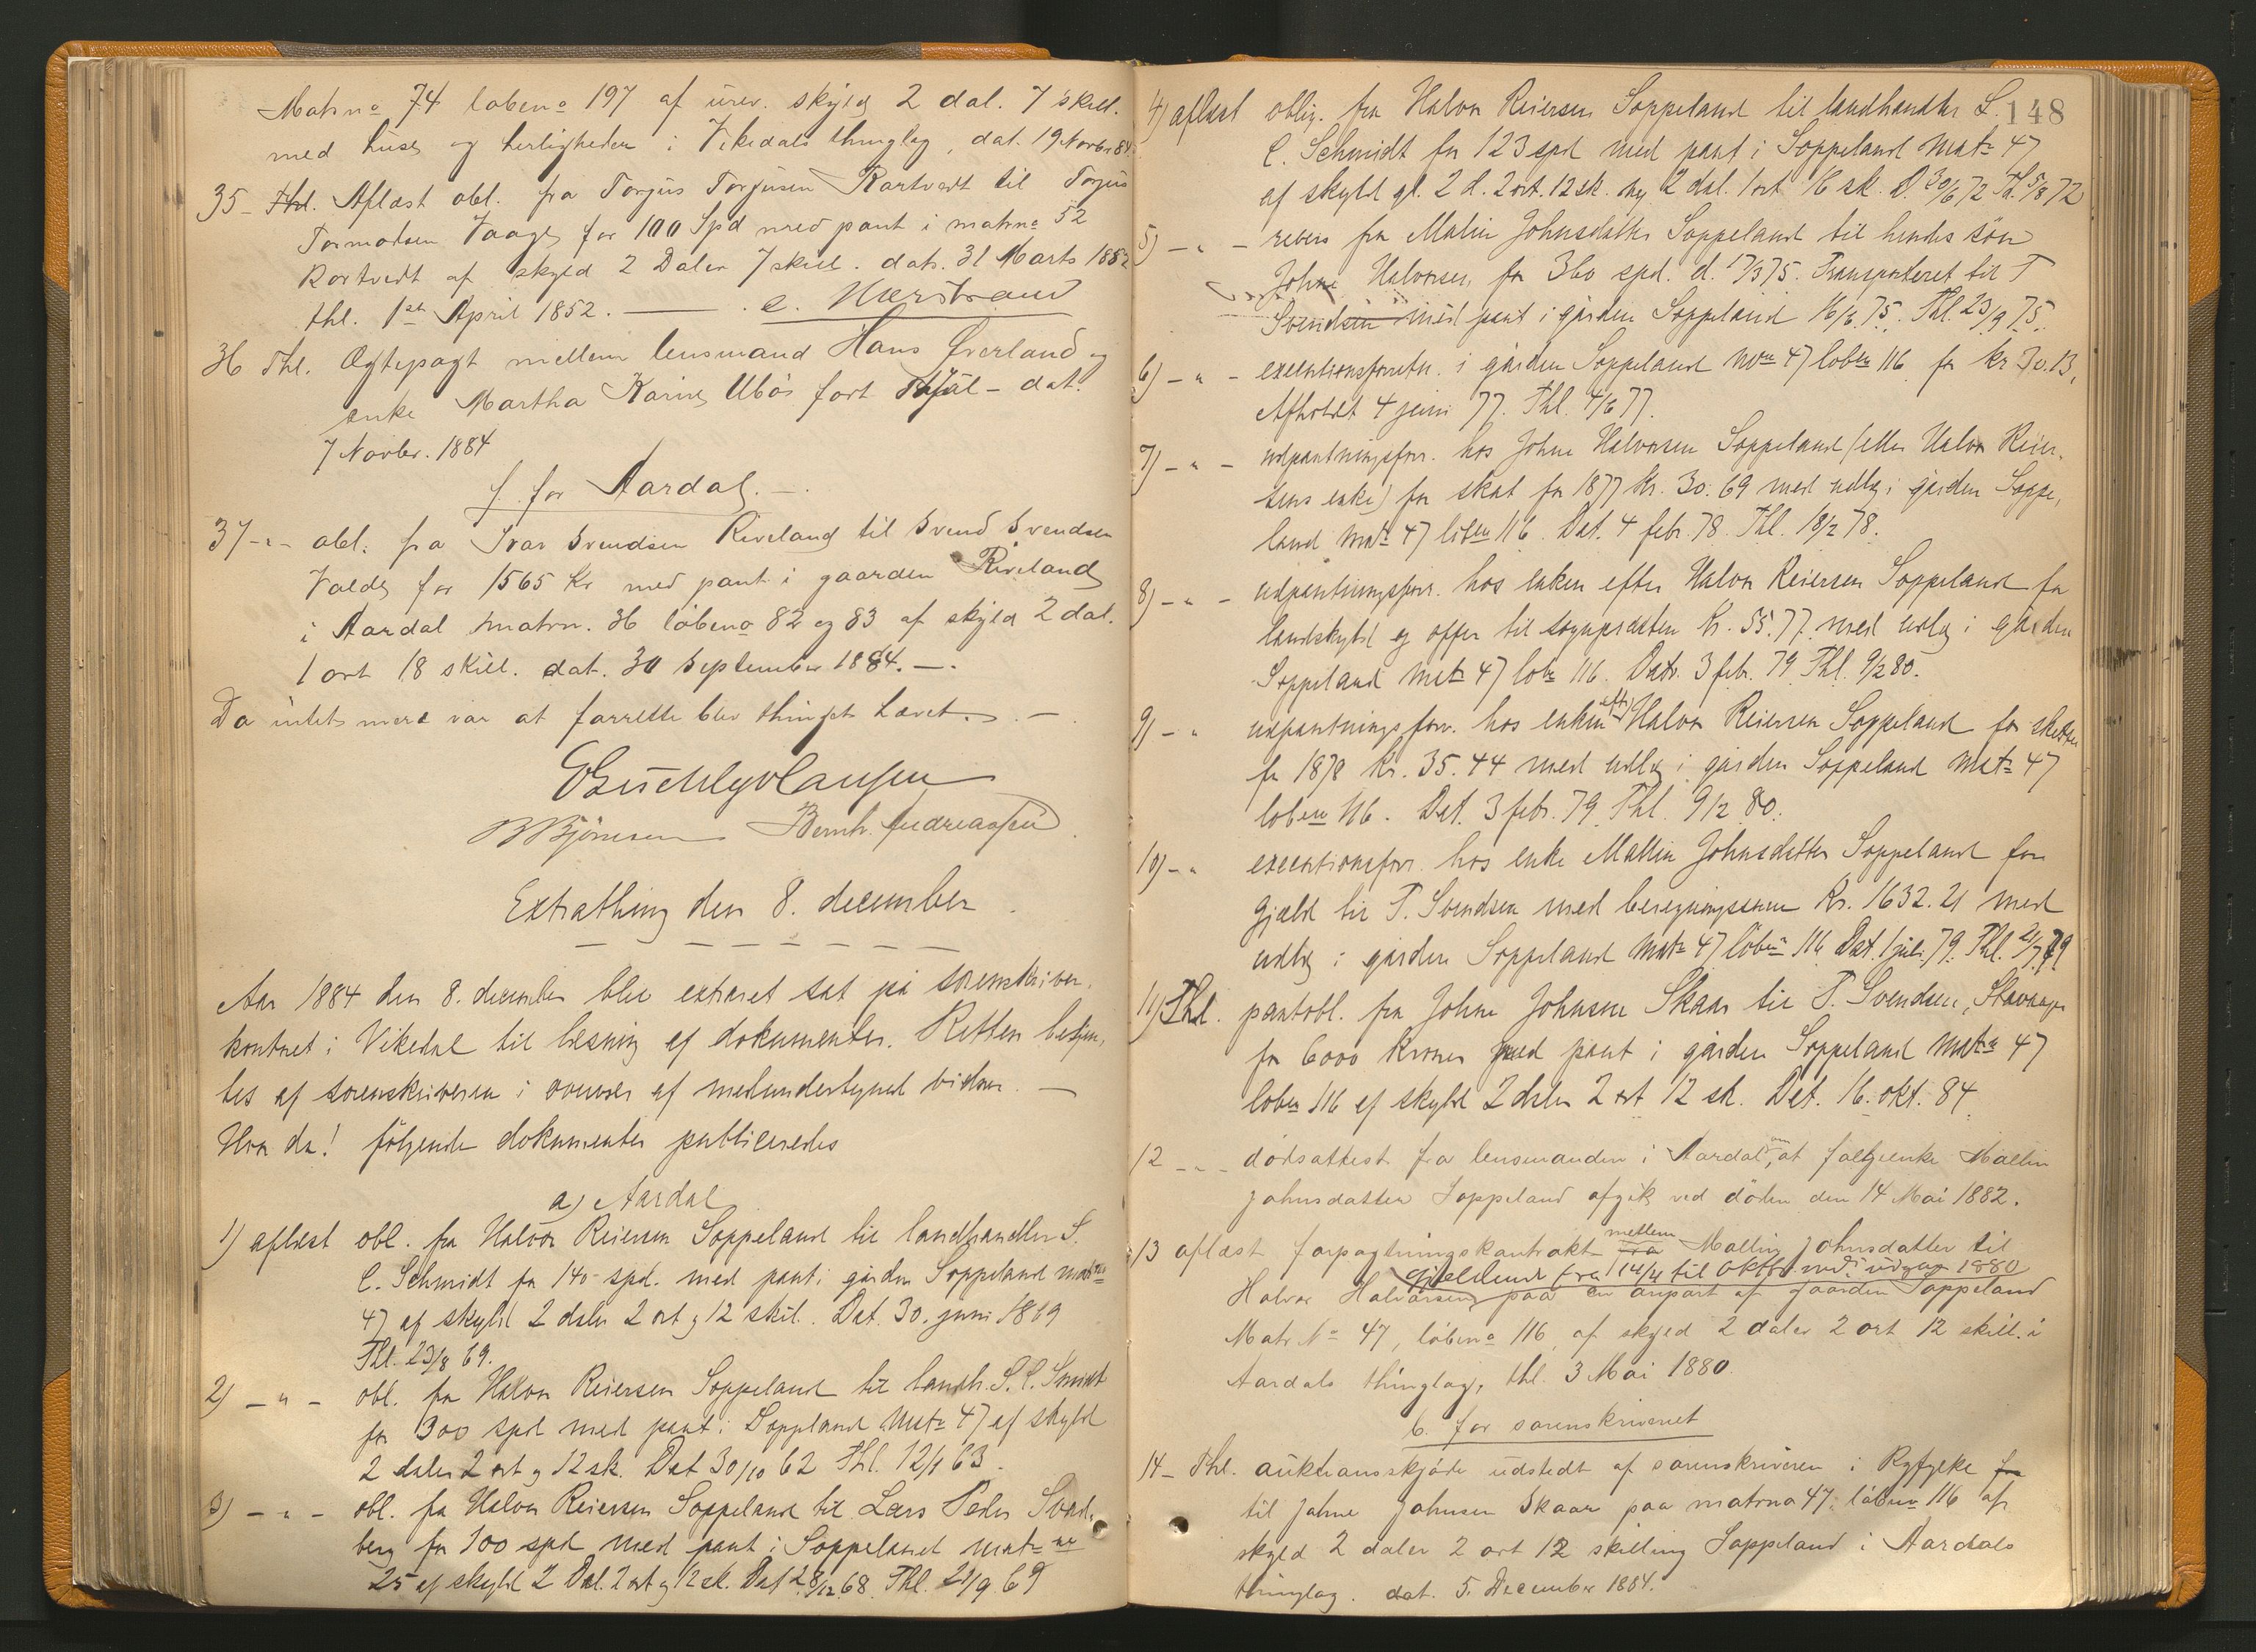 Matr no 74 løbeno 197 af urev. skyld 2 dal. 7 skill.
med huse og herligheder i Vikedals thinglag, dat. 19 Novbr 84
35 - Thl. Aflæst obl. fra Torgus Torgusen Kartvedt til Torgus
Tormodsen Vaage for 100 Spd med pant i matrno 52
Kartvedt af skyld 2 Daler 7 skill. dat. 31 Marts 1852
thl. 1ste April 1852. e. Nærstrand
36 Thl. Ægtepagt mellem lensmand Hans Øverland og
enke Martha Karine Ubøs født - dat.
7 Novbr. 1884
f. for Aardal. -
37 - " - obl. fra Ivar Svendsen Riveland til Svend Svendsen
Valde for 1565 Kr med pant i gaarden Riveland
i Aardal matrn. 36 løbeno 82 og 83 af skyld 2 dal.
1 ort 18 skill. dat. 30 September 1884. -
Da intet mere var at forrette blev thinget hævet. -
B Bjørnsen Bernh. Andreassen
Extrathing den 8. december
Aar 1884 den 8. december blev extraret sat på sorenskriver-
kontoret i Vikedal til læsning af dokumenter. Retten betjen-
tes af sorenskriveren i overvær af medundertegned vidner. -
Hvor da! følgende dokumenter publiceredes
a) Aardal
1) aflæst obl. fra Halvor Reiersen Soppeland til landhandler S.
C. Schmidt for 140 spd. med pant i gården Soppeland matr no
47 af skyld 2 daler 2 ort og 12 skil. Dat. 30. juni 1869
Thl. 23/8 69.
2) - " - obl. fra Halvor Reiersen Soppeland til landh. S. C. Smidt
for 300 spd med pant i Soppland Matr 47 af skyld
2 daler 2 ort og 12 sk. Dat 30/10 62 Thl. 12/1 63.
3) - " - obl. fra Halvor Reiersen Soppeland til Lars Peder Svad-
berg for 100 spd med pant i Soppeland matr no
25 af skyld 2 Dal. 2 ort og 12 sk. Dat 28/12 68. Thl. 21/9 69
148
4) aflæst oblig. fra Halvor Reiersen Soppeland til landhandler S.
C. Schmidt for 123 spd med pant i Soppeland Matr 47
af skyld gl. 2 d. 2 ort. 12 sk. ny 2 dal. 1 ort 16 sk. D. 30/6 72 Th. 5/8 72
5) - " - revers fra Malin Johnsdatter Soppeland til hendes søn
Johne Halvorsen for 360 spd. d. 17/3 75. Transporteret til T
Svendsen med pant i gården Soppeland 16/6 75. Thl. 23/9 75.
6) - " - executionsforretn. i gården Soppeland No 47 løben 116 for kr 70.13,
Afholdt 4 juni 77. Thl. 4/6 77.
7) - " - udpantningsforr. hos Johne Halvorsen Soppeland (eller Halvor Reier-
sens enke) for skat for 1877 Kr. 30.69 med udlæg i gården Soppe-
land Matr 47 løben 116. Dat. 4 febr. 78. Thl. 18/2 78.
8) - " - udpantningsforr. hos enken efter Halvor Reiersen Soppeland for
landskyld og offer til sognepræsten Kr. 55.77 med udlæg i gården
Soppeland Matr 47 løbn 116. Datr. 3 febr. 79 Thl. 9/2 80.
9) - " udpantningsforr. hos enken efter Halvor Reiersen Soppeland for skatter
for 1878 Kr. 35.44 med udlæg i gården Soppeland Matr 47
løben 116. Dat. 3 febr. 79. Thl. 9/2 80.
10) - " executionsforr. hos enke Mallin Johnsdatter Soppeland for
gjæld til T. Svendsen med beregningssum Kr. 1632.21 med
udlæg i gården Soppeland Matr 47 løben 116 Dat. 1 juli 79. Thl. 21/7 79
11) Thl. pantobl. fra Johne Johnsen Skaar til T. Svendsen, Stavanger
for 6000 Kroner med pant i gården Soppeland Matr 47
løben 116 af skyld 2 daler 2 ort 12 sk. Dat. 16. okt. 84.
12 - " - dødsattest fra lensmanden i Aardal om, at Mallin
Johnsdatter Soppeland afgik ved døden den 14 Mai 1882.
13 aflæst forpagtningskontrakt fra mellem Mallin Johnsdatter til
gjældende fra 14/4 til Oktbr. udgang 1880
Halvor Halvorsen paa en anpart af gaarden Soppeland
Matr No 47, løbeno 116, af skyld 2 daler 2 ort 12 skill. i
Aardals thinglag, thl. 3 Mai 1880.
b. for sorenskriveriet
14 - Thl. auktionsskjøde udstedt af sorenskriveren i Ryfylke fra
til Johne Johnsen Skaar paa matrno 47 løbeno 116 af
skyld 2 daler 2 ort 12 skilling Soppeland i Aardals
thinglag. dat. 5. December 1884.